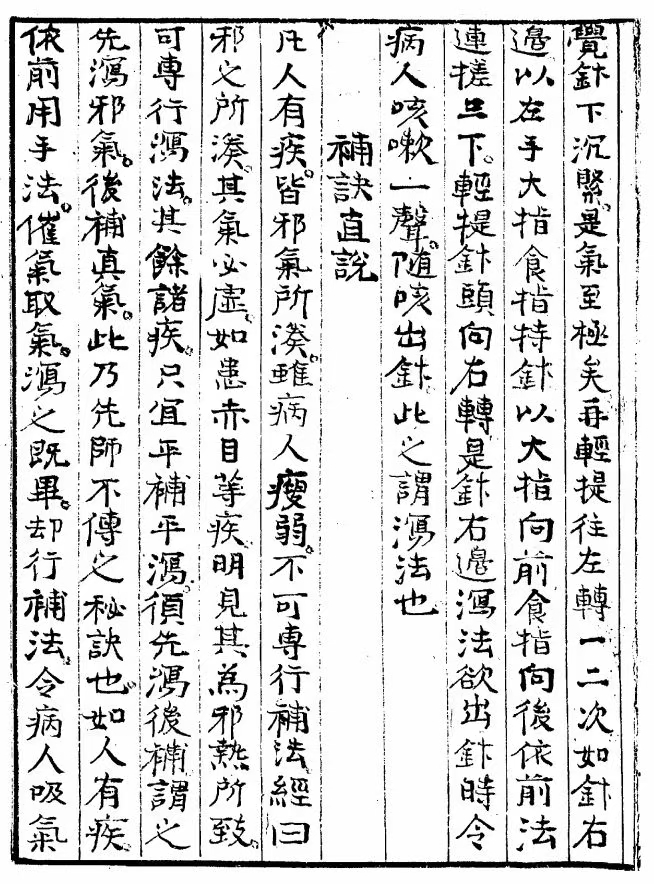 覺針下沉緊。是氣至極矣再輕提往左轉一二次如針右
邊以左手大指食指持針以大指向前食指向後依前法
連搓三下。輕提針頭向右轉是針右邊瀉法欲出針時令
病人咳嗽一聲。隨咳出針。此之謂瀉法也
補訣直說
凡人有疾。皆邪氣所湊。雖病人瘦弱。不可専行補法經曰
邪之所湊。其氣必虛。如患赤目等疾。明見其為邪熱所致。
可専行瀉法。其餘諸疾。只宜平補平瀉。須先瀉後補謂之
先瀉邪氣。後補真氣。此乃先師不傳之秘訣也。如人有疾。
依前用手法。催氣取氣。瀉之既畢。却行補法。令病人吸氣